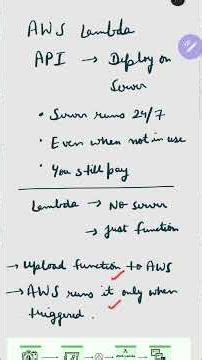 AWS Lambda
API → Deploy on
Server
• Server runs 24/7
• Even when not in use
• You still pay
Lambda → No server
→ Just function
→ Upload function to AWS
→ AWS runs it only when
triggered.